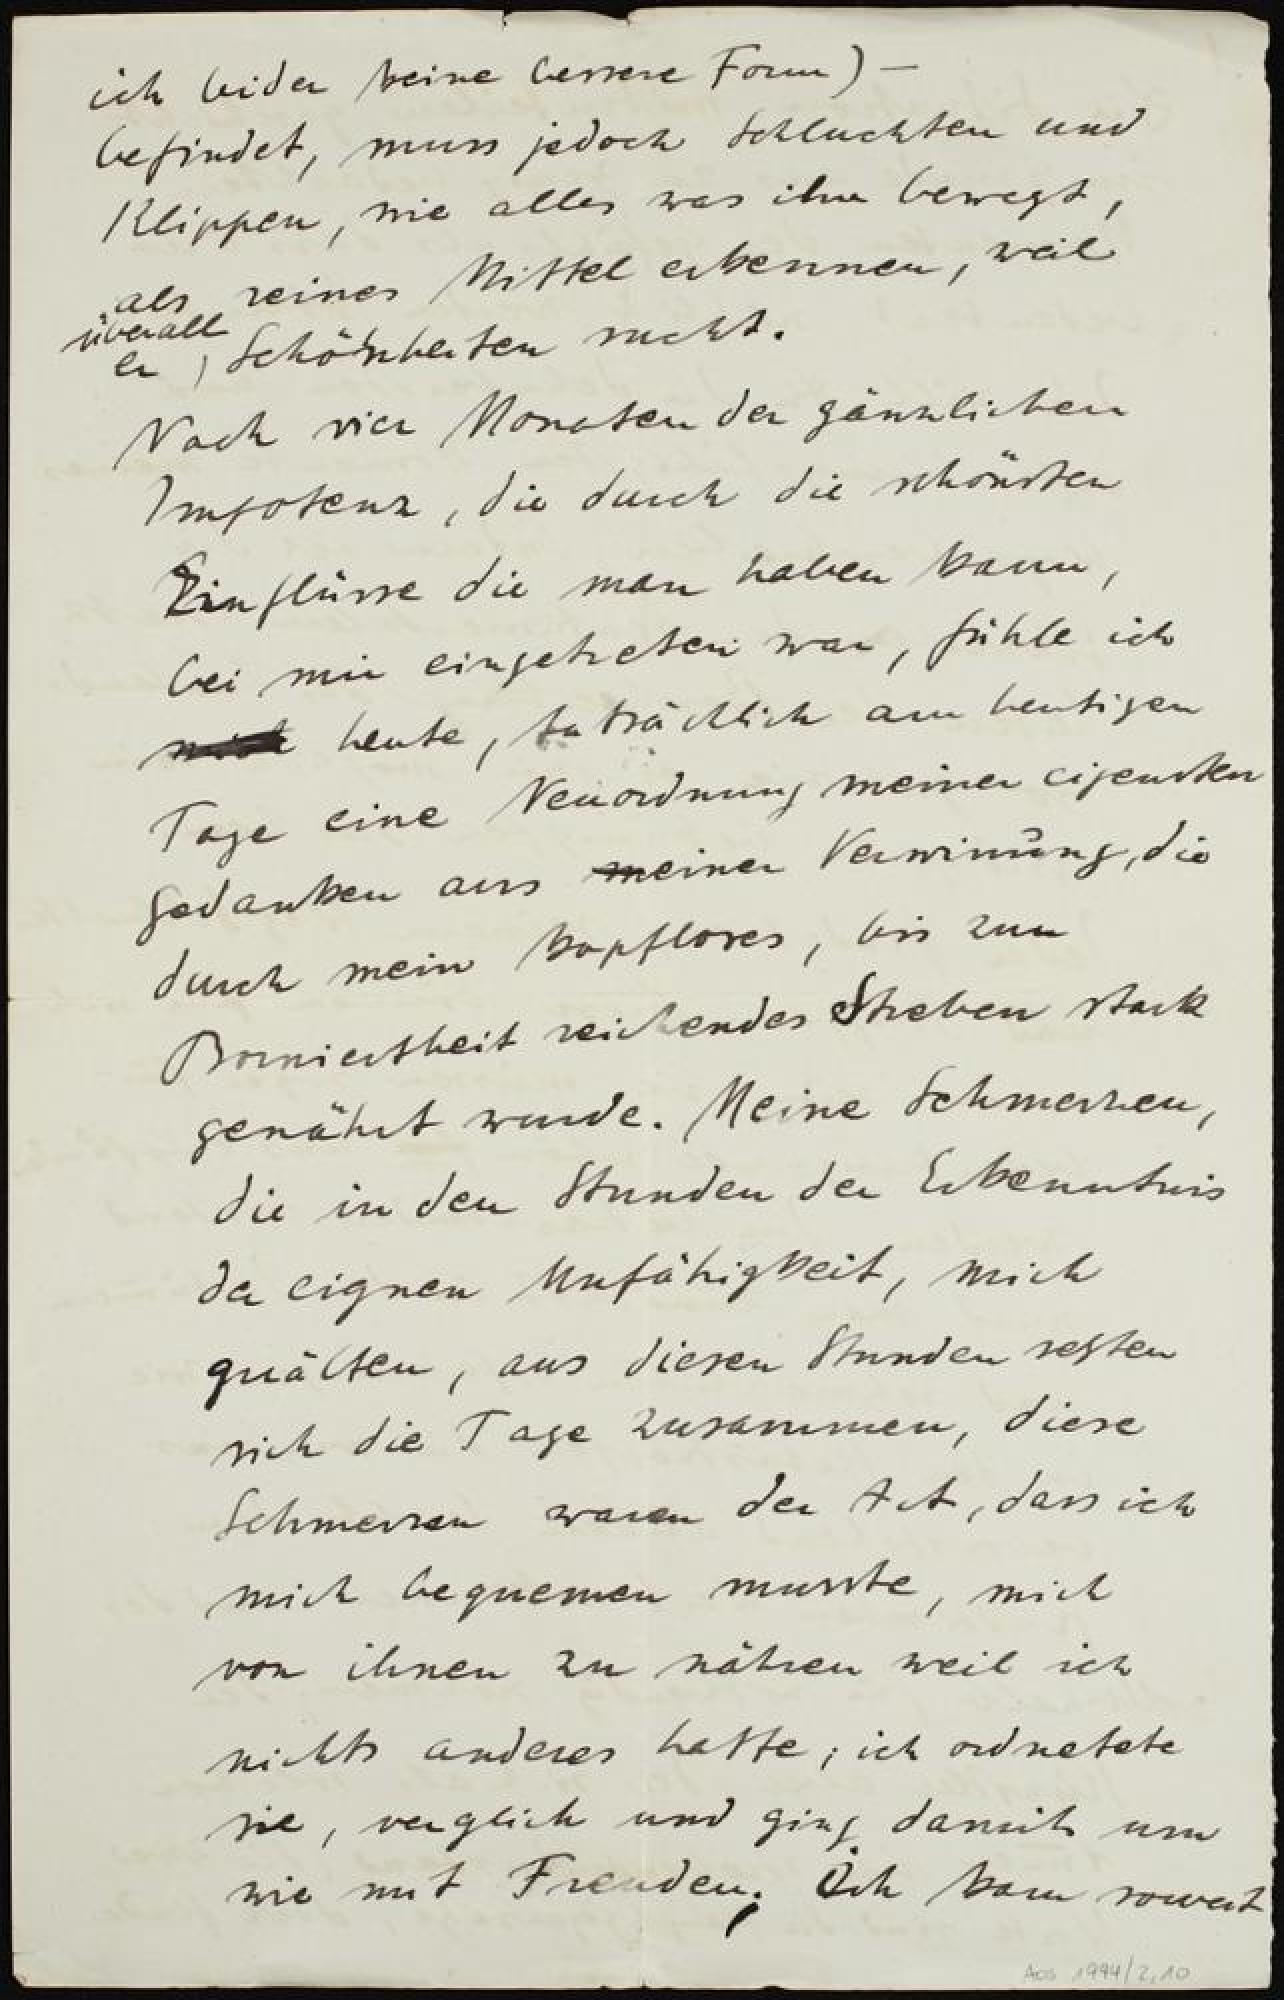 ich leider keine bessere Form) –
befindet, muss jedoch Schluchten und
Klippen, wie alles was ihn bewegt,
als reines Mittel erkennen, weil
überall
er, Schönheiten sucht.
Nach vier Monaten der gänzlichen
Impotenz, die durch die schönsten
Einflüsse die man haben kann,
bei mir eingetreten war, fühle ich
heute, tatsächlich am heutigen
Tage eine Neuordnung meiner eigensten
Gedanken aus meiner Verwirrung, die
durch mein kopfloses, bis zur
Borniertheit reichendes Streben stark
genährt wurde. Meine Schmerzen,
die in den Stunden der Erkenntnis
der eignen Unfähigkeit, mich
quälten, aus diesen Stunden setzten
sich die Tage zusammen, diese
Schmerzen waren der Art, dass ich
mich bequemen musste, mich
von ihnen zu nähren weil ich
nichts anderes hatte; ich ordnetete
sie, verglich und ging damit um
wie mit Freuden. Ich kam soweit
Aos 1994/2,10